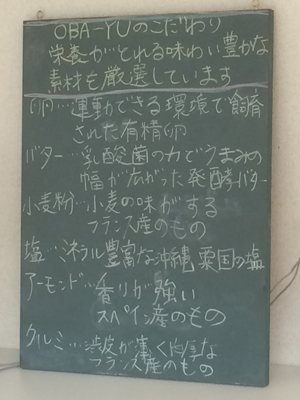 OBA-YUのこだわり
栄養がとれる味わい豊かな
素材を厳選しています
卵…運動できる環境で飼育
された有精卵
バター…乳酸菌の力でうまみの
幅が広がった発酵バター
小麦粉…小麦の味がする
フランス産のもの
塩…ミネラル豊富な沖縄、粟国の塩
アーモンド…香りが強い
スペイン産のもの
クルミ…渋皮が薄く肉厚な
フランス産のもの